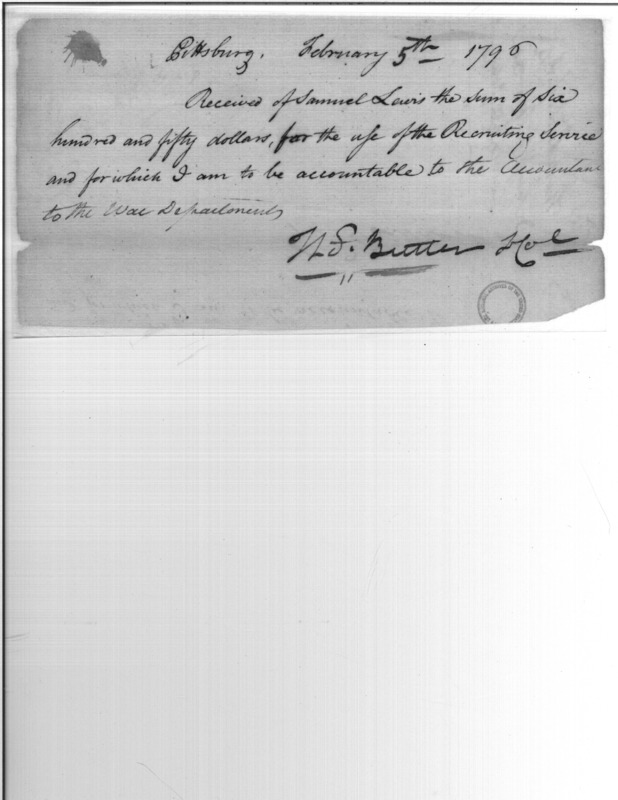 Pittsburg, February 5th 1796
Received of Samuel Lewis the sum of Six
hundred and fifty dollars, for the use of the Recruiting Service
and for which I am to be accountable to the Accountant
to the War Department
Butler